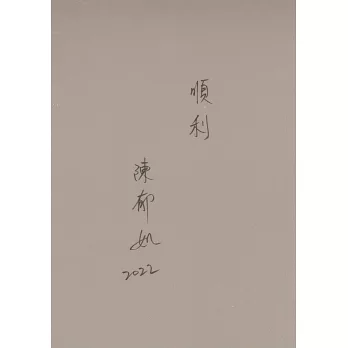 順利
陳郁如
2022